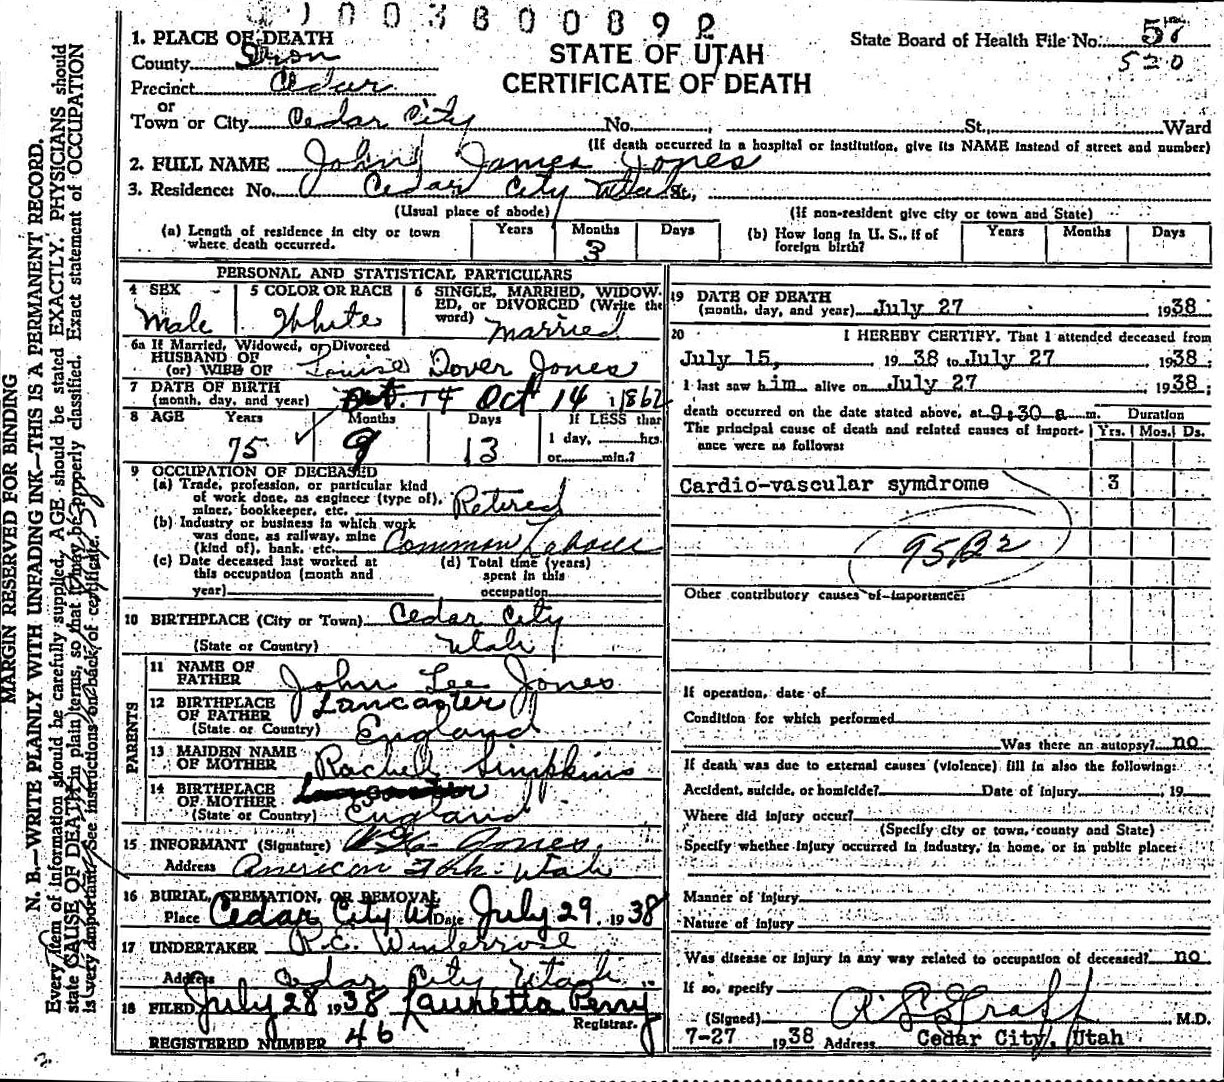 1003800892
1. PLACE OF DEATH
County Iron
Precinct Cedar
or
Town or City Cedar City No. , St., Ward
STATE OF UTAH
CERTIFICATE OF DEATH
State Board of Health File No. 57
520
(If death occurred in a hospital or institution, give its NAME instead of street and number)
2. FULL NAME John James Jones
3. Residence: No. Cedar City Utah St.,
(Usual place of abode)
(If non-resident give city or town and State)
(a) Length of residence in city or town where death occurred. Years Months 3 Days
(b) How long in U. S., if of foreign birth? Years Months Days
PERSONAL AND STATISTICAL PARTICULARS
4 SEX Male
5 COLOR OR RACE White
6 SINGLE, MARRIED, WIDOWED, or DIVORCED (Write the word) Married
6a If Married, Widowed, or Divorced
HUSBAND OF
(or) WIFE OF Louise Dover Jones
7 DATE OF BIRTH
(month, day, and year) Oct. 14 Oct 14 1862
8 AGE Years 75 Months 9 Days 13 If LESS than
1 day, hrs.
or min.?
9 OCCUPATION OF DECEASED
(a) Trade, profession, or particular kind
of work done, as engineer (type of),
miner, bookkeeper, etc. Retired
(b) Industry or business in which work
was done, as railway, mine
(kind of), bank, etc. Common Laborer
(c) Date deceased last worked at
this occupation (month and
year)
(d) Total time (years)
spent in this
occupation
10 BIRTHPLACE (City or Town) Cedar City
(State or Country) Utah
PARENTS
11 NAME OF
FATHER John Lee Jones
12 BIRTHPLACE
OF FATHER Lancaster
(State or Country) England
13 MAIDEN NAME
OF MOTHER Rachel Simpkins
14 BIRTHPLACE
OF MOTHER Lancaster
(State or Country) England
15 INFORMANT (Signature) Jones
Address American Fork Utah
16 BURIAL, CREMATION, OR REMOVAL
Place Cedar City Ut Date July 29. 1938
17 UNDERTAKER
Address Cedar City Utah
18 FILED July 28 1938 Launetta Perry
Registrar.
REGISTERED NUMBER 46
19 DATE OF DEATH
(month, day, and year) July 27 1938
20 I HEREBY CERTIFY, That I attended deceased from
July 15, 1938 to July 27 1938;
I last saw him alive on July 27 1938;
death occurred on the date stated above, at 9:30 a m.
Duration
The principal cause of death and related causes of importance were as follows: Yrs. Mos. Ds.
Cardio-vascular symdrome 3
95B2
Other contributory causes of importance:
If operation, date of
Condition for which performed
Was there an autopsy? no
If death was due to external causes (violence) fill in also the following:
Accident, suicide, or homicide? Date of injury 19
Where did injury occur?
(Specify city or town, county and State)
Specify whether injury occurred in industry, in home, or in public place:
Manner of injury
Nature of injury
Was disease or injury in any way related to occupation of deceased? no
If so, specify
(Signed) Graff M.D.
7-27 1938 Address Cedar City, Utah
MARGIN RESERVED FOR BINDING
N. B.—WRITE PLAINLY WITH UNFADING INK—THIS IS A PERMANENT RECORD.
Every item of information should be carefully supplied. AGE should be stated EXACTLY. PHYSICIANS should
state CAUSE OF DEATH in plain terms, so that it may be properly classified. Exact statement of OCCUPATION
is very important. See instructions on back of certificate.